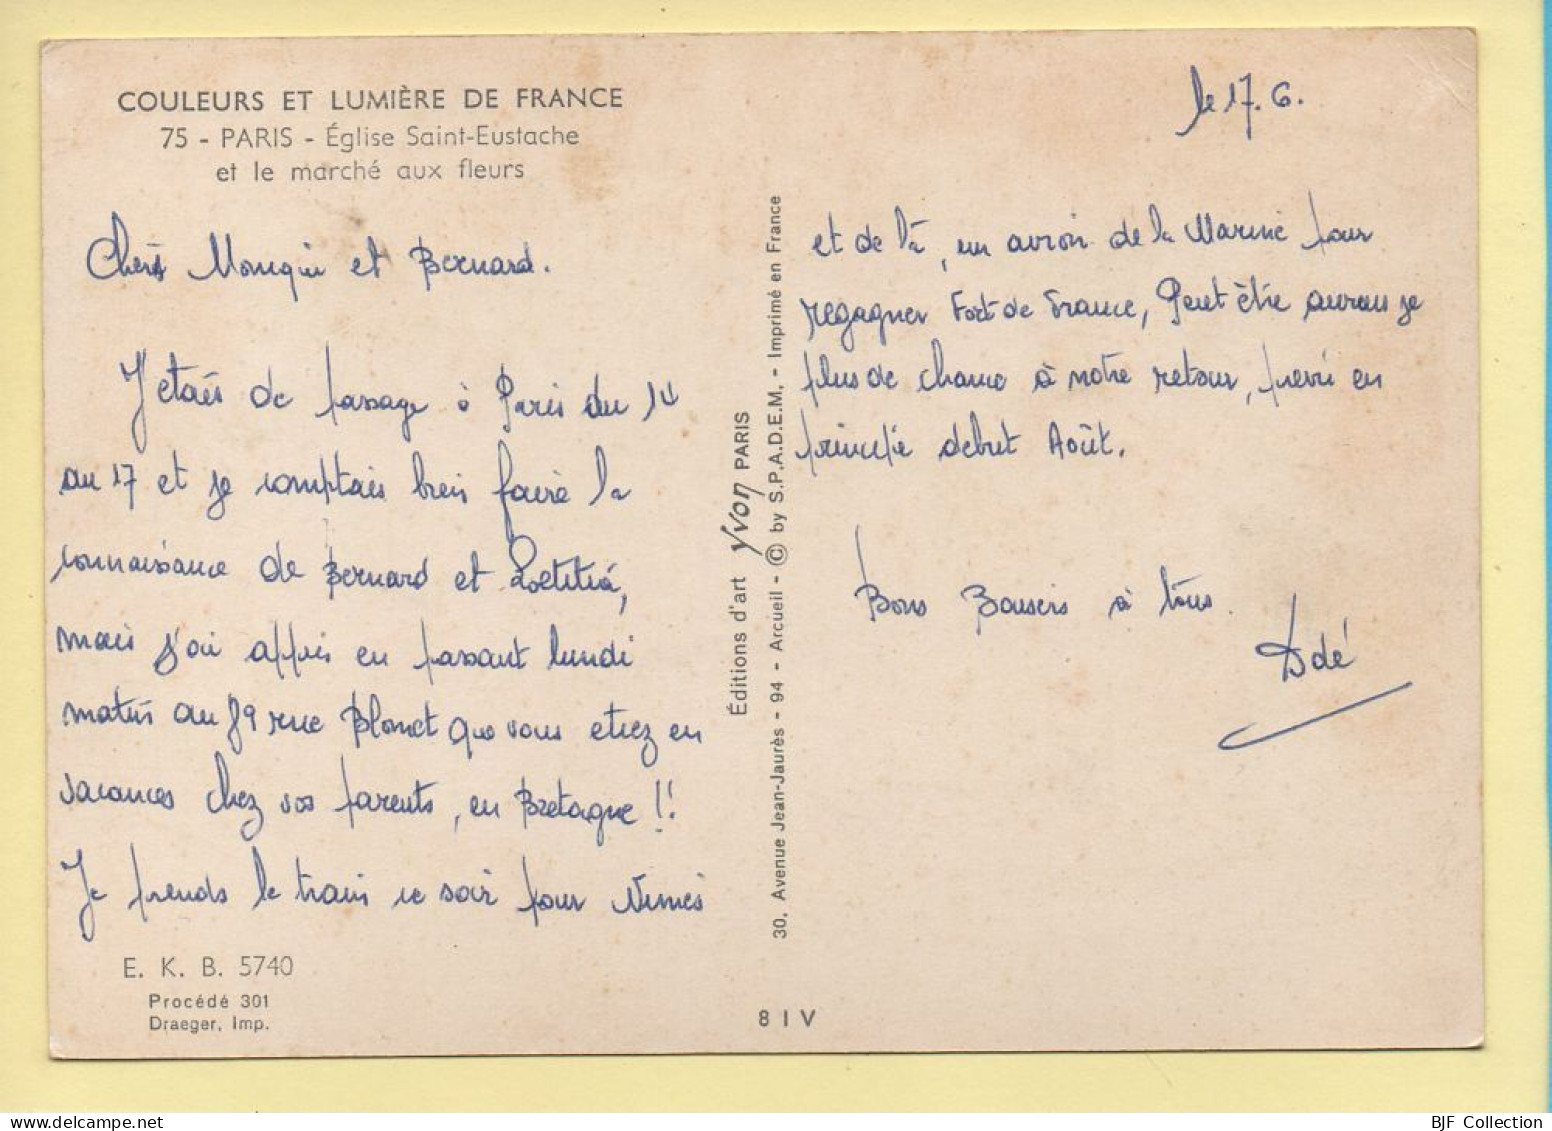 COULEURS ET LUMIÈRE DE FRANCE
75 - PARIS - Église Saint-Eustache
et le marché aux fleurs
le 17.6.
Chers et Bernard.
J'etais de passage à Paris du 14
au 17 et je comptais bien faire la
connaissance de Bernard et Laetitia,
mais j'ai appris en passant lundi
matin au 89 rue Blomet que vous etiez en
vacances chez vos parents, en Bretagne !!
Je prends le train ce soir pour Nimes
et de là, un avion de la Marine pour
regagner Fort de France, Peut être aurais je
plus de chance à notre retour, prévu en
principe debut Août.
Bons Baisers à tous.
Ddé
Éditions d'art Yvon PARIS
30, Avenue Jean-Jaurès - 94 - Arcueil - © by S.P.A.D.E.M. - Imprimé en France
E. K. B. 5740
Procédé 301
Draeger, Imp.
8 I V
BJF Collection